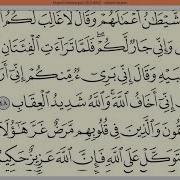 شَّيْطَٰنُ أَعْمَٰلَهُمْ وَقَالَ لَا غَالِبَ لَكُمُ
وَإِنِّى جَارٌ لَّكُمْ فَلَمَّا تَرَآءَتِ ٱلْفِئَتَانِ
بَيْهِ وَقَالَ إِنِّى بَرِىٓءٌ مِّنكُمْ إِنِّىٓ
إِنِّىٓ أَخَافُ ٱللَّهَ وَٱللَّهُ شَدِيدُ ٱلْعِقَابِ ٤٨
قُونَ وَٱلَّذِينَ فِى قُلُوبِهِم مَّرَضٌ غَرَّ هَٰٓؤُلَآ
تَوَكَّلْ عَلَى ٱللَّهِ فَإِنَّ ٱللَّهَ عَزِيزٌ حَكِيمٌ